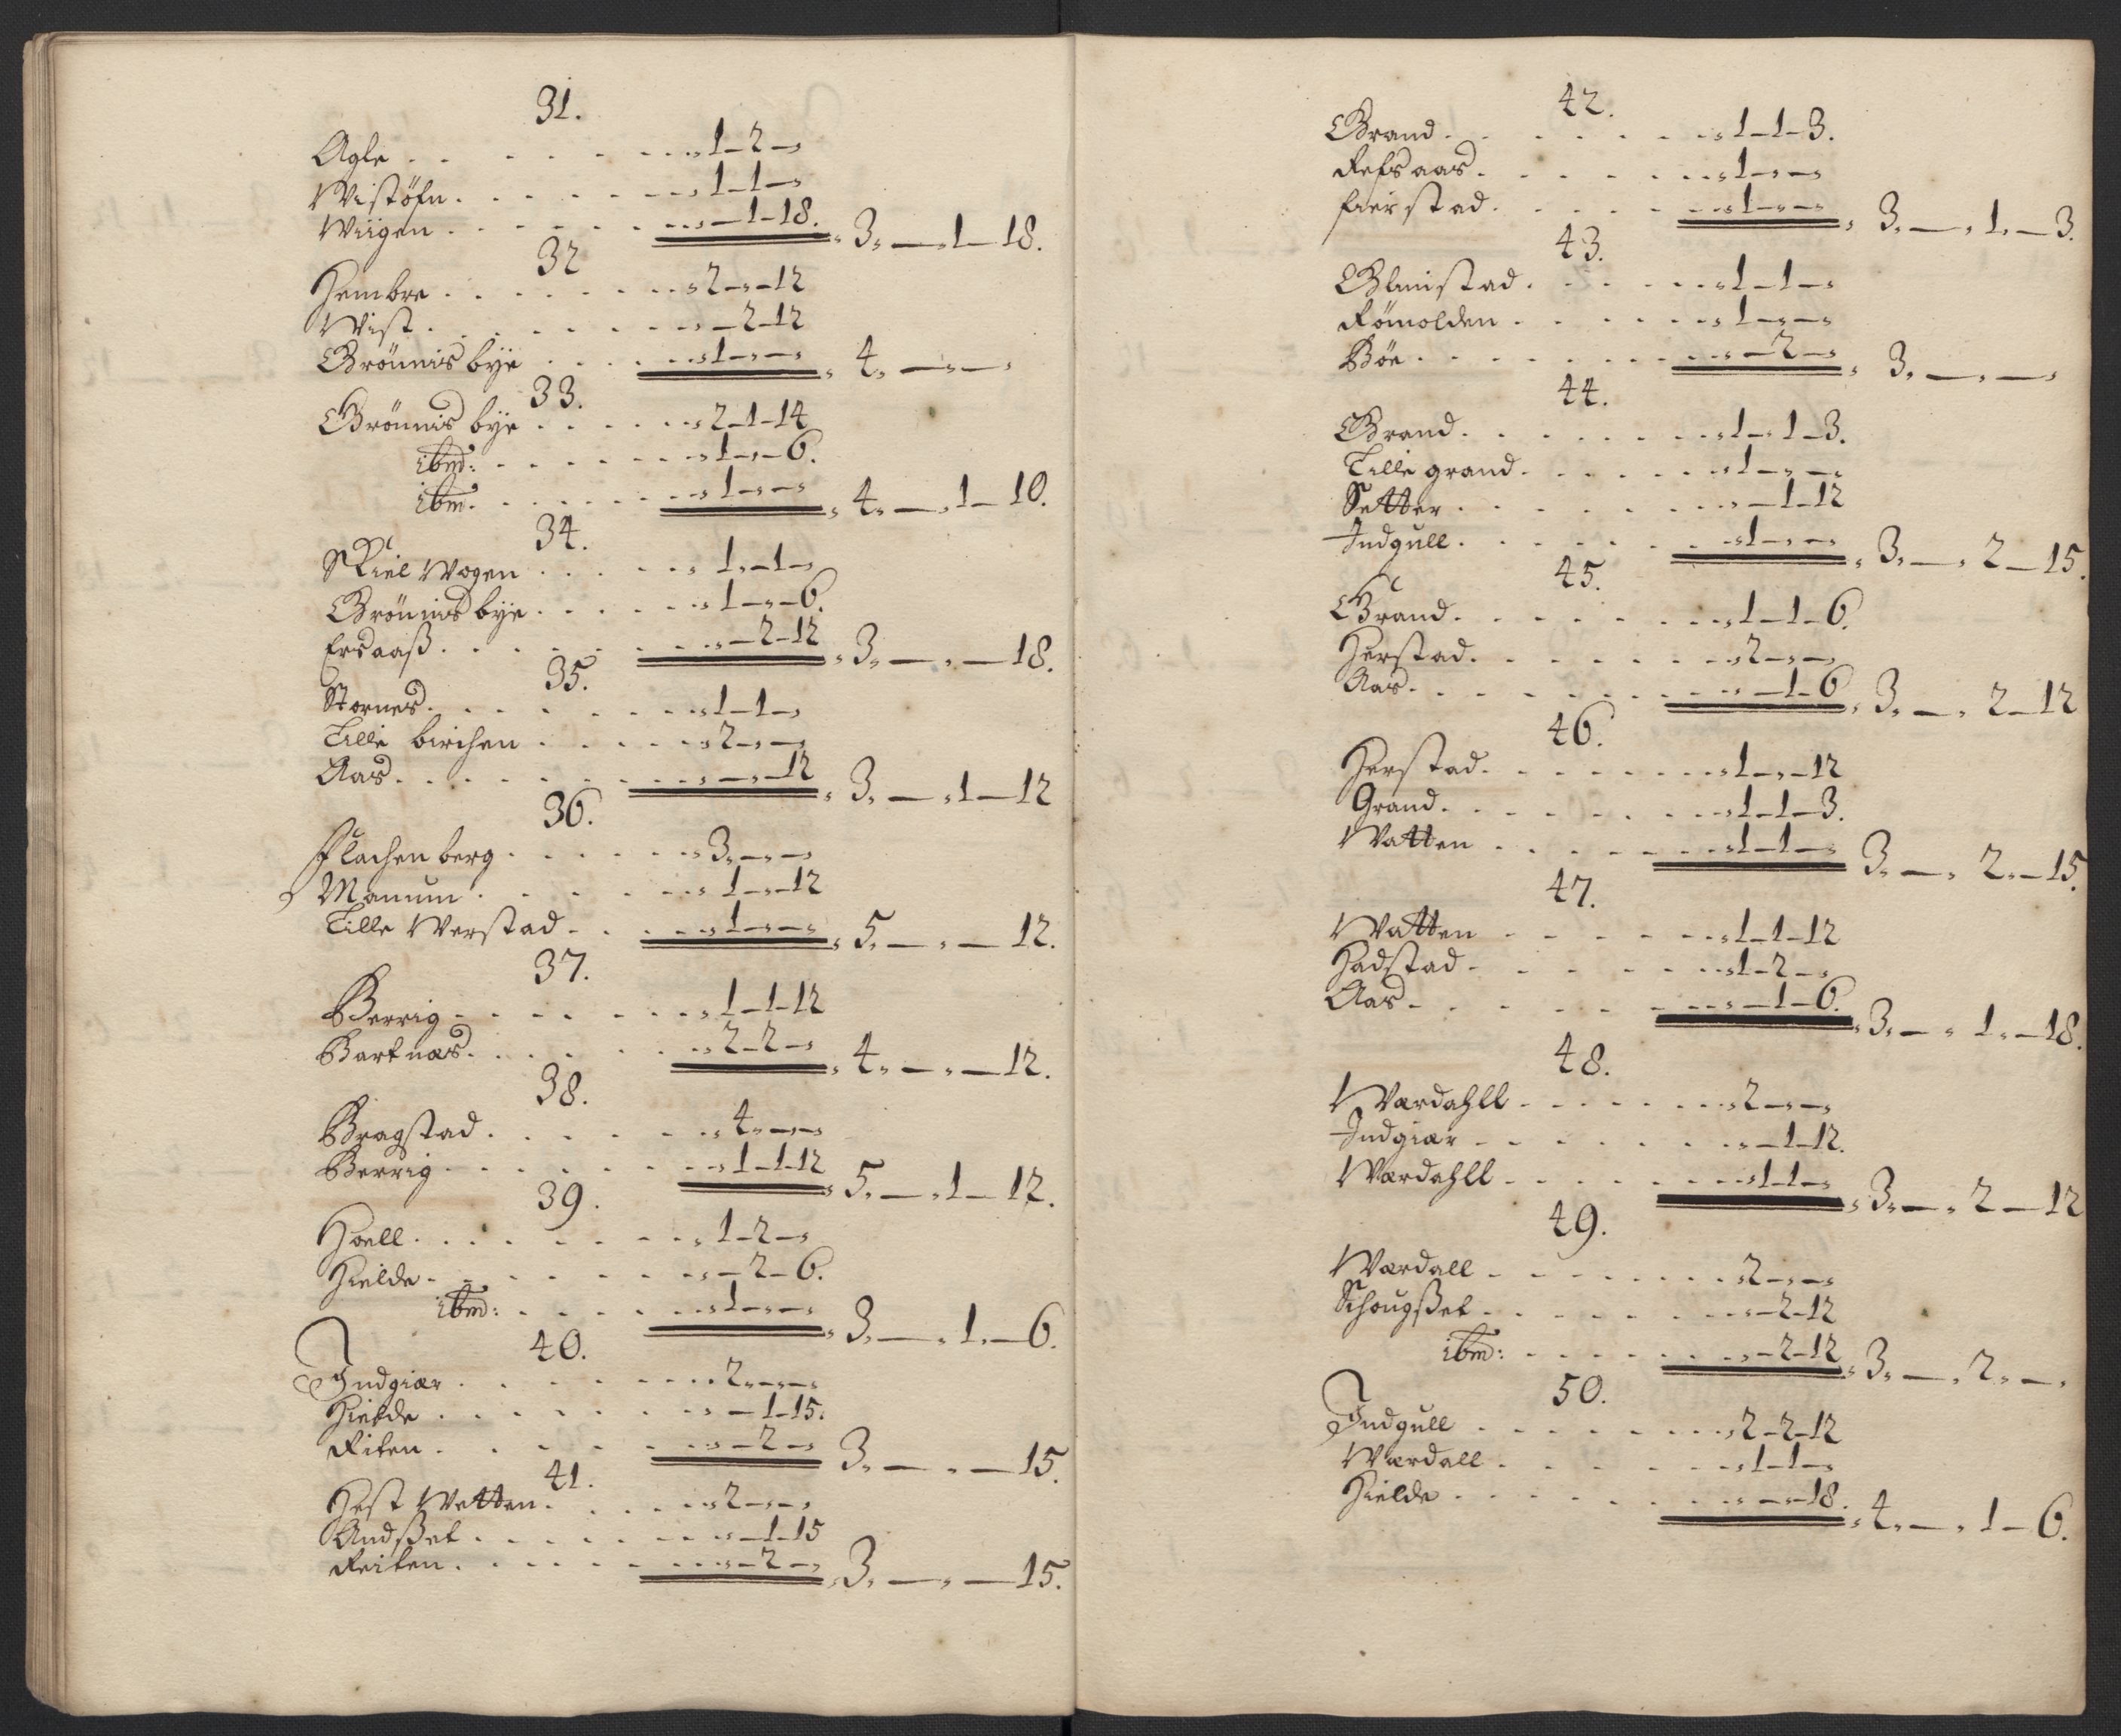 31.
Agle . . . . . . . . „ 1 – 2 – „
Wistöfn . . . . . . . „ 1 – 1 – „
Wiigen . . . . . . . „ – 1 – 18. „ 3. — „ 1 — 18.
32
Hembre . . . . . . . „ 2 – „ – 12
Wist . . . . . . . „ – 2 – 12
Grönnis bÿe . . . . . „ 1 – „ – „ „ 4. — „ — „
33.
Grönnis bÿe . . . . . „ 2 – 1 – 14
ibm: . . . . . . „ 1 – „ – 6.
ibm. . . . . . . „ 1 – „ – „ „ 4. — „ 1 — 10.
34.
Skiel Wogen . . . . . „ 1. – 1 – „
Grönnis bÿe . . . . . „ 1 – „ – 6.
Ersaaß . . . . . . . „ – 2 – 12 „ 3. — „ — 18.
35.
Stornes . . . . . . . „ 1 – 1 – „
Lille birchen . . . . . „ 2 – „ – „
Aas . . . . . . . „ – „ – 12 „ 3. — „ 1 — 12
36.
Flachen berg . . . . . „ 3. – „ – „
Manum . . . . . . „ 1 – „ – 12
Lille Werstad . . . . „ 1 – „ – „ „ 5. — „ — 12.
37.
Berrig . . . . . . . „ 1 – 1 – 12
Bartnæs . . . . . . . „ 2 – 2 – „ „ 4. — „ — 12.
38.
Bragstad . . . . . . . „ 4. – „ – „
Berrig . . . . . . . „ 1 – 1 – 12 „ 5. — „ 1 — 12.
39.
Hoell . . . . . . . „ 1 – 2 – „
Hielde . . . . . . . „ – 2 – 6.
ibm: . . . . . . „ 1 – „ – „ „ 3. — „ 1. — 6.
40.
Indgiær . . . . . . . „ 2 – „ – „
Hielde . . . . . . . „ – 1 – 15.
Riten . . . . . . . „ – 2 – „ 3. — „ — 15.
41.
Hest Wetten . . . . . „ 2 – „ – „
Andßet . . . . . . . „ – 1 – 15
Reiten . . . . . . . „ – 2 – „ „ 3. — „ — 15.
42.
Grand . . . . . . . „ 1 – 1 – 3.
Refsaas . . . . . . . „ 1 – „ – „
fierstad . . . . . . . „ 1 – „ – „ „ 3. — „ 1. — 3.
43.
. . . . . . . „ 1 – 1 – „
Römolden . . . . . . „ 1 – „ – „
Böe . . . . . . . „ – 2 – „ „ 3. — „ — „
44.
Grand . . . . . . . „ 1 – 1 – 3.
Lille grand . . . . . „ 1 – „ – „
Setter . . . . . . . „ – 1 – 12
Indgull . . . . . . . „ 1 – „ – „ „ 3. — „ 2 — 15.
45.
Grand . . . . . . . „ 1 – 1 – 6.
Herstad . . . . . . . „ 2 – „ – „
Aas . . . . . . . „ – 1 – 6 „ 3. — „ 2 — 12
46.
Herstad . . . . . . . „ 1 – „ – 12
Grand . . . . . . . „ 1 – 1 – 3.
Watten . . . . . . . „ 1 – 1 – „ 3. — „ 2. — 15.
47.
Watten . . . . . . . „ 1 – 1 – 12
Hadstad . . . . . . . „ 1 – 2 – „
Aas . . . . . . . „ – 1 – 6. „ 3. — „ 1. — 18.
48.
Wærdahll . . . . . . „ 2 – „ – „
Indgiær . . . . . . . „ – 1 – 12.
Wærdahll . . . . . . „ 1 – 1 – „ „ 3. — „ 2 — 12
49.
Wærdall . . . . . . . „ 2 – „ – „
Schougßet . . . . . . „ – 2 – 12
ibm: . . . . . . „ – 2 – 12 „ 3. — „ 2. — „
50.
Indgull . . . . . . . „ 2 – 2 – 12
Wærdall . . . . . . . „ 1 – 1 – „
Hielde . . . . . . . „ – „ – 18. „ 4. — „ 1 — 6.